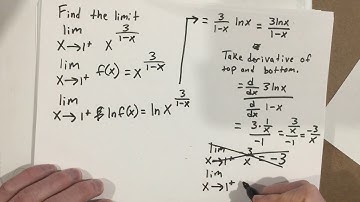 Find the limit
lim x→1⁺ x^(3/(1-x))
lim x→1⁺ f(x) = x^(3/(1-x))
lim x→1⁺ ln f(x) = ln x^(3/(1-x))
= 3/(1-x) ln x = 3 ln x/(1-x)
Take derivative of
top and bottom.
= (d/dx 3 ln x)/(d/dx 1-x)
= (3·1/x)/(-1) = (3/x)/(-1) = -3/x
lim x→1⁺ 3/x = -3
lim x→1⁺